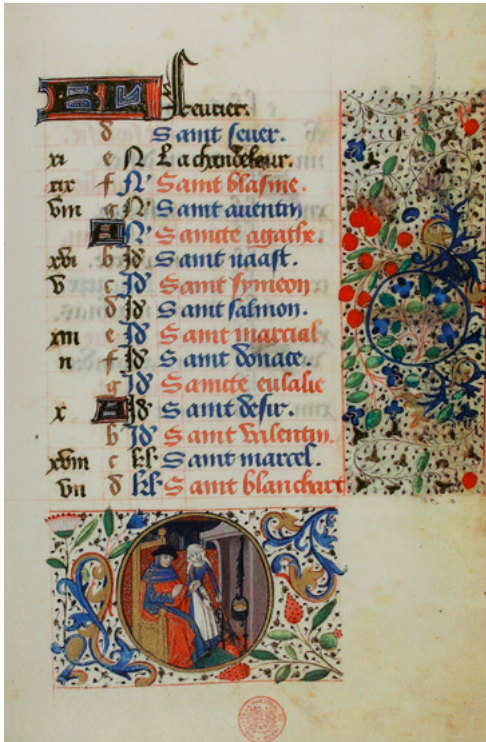 KL Feurier.
d Saint seuer.
xi e N' La chandeleur.
xix f N' Saint blasme.
viii g N' Saint auentin
A N' Saincte agathe.
xvi b Id Saint uaast.
v c Id Saint symeon
d Id Saint salmon.
xiii e Id Saint marcial
ii f Id Saint donace.
g Id Saincte eulalie
x A Id Saint desir.
b Id Saint valentin.
xviii c kl Saint marcel
vii d kl Saint blanchart